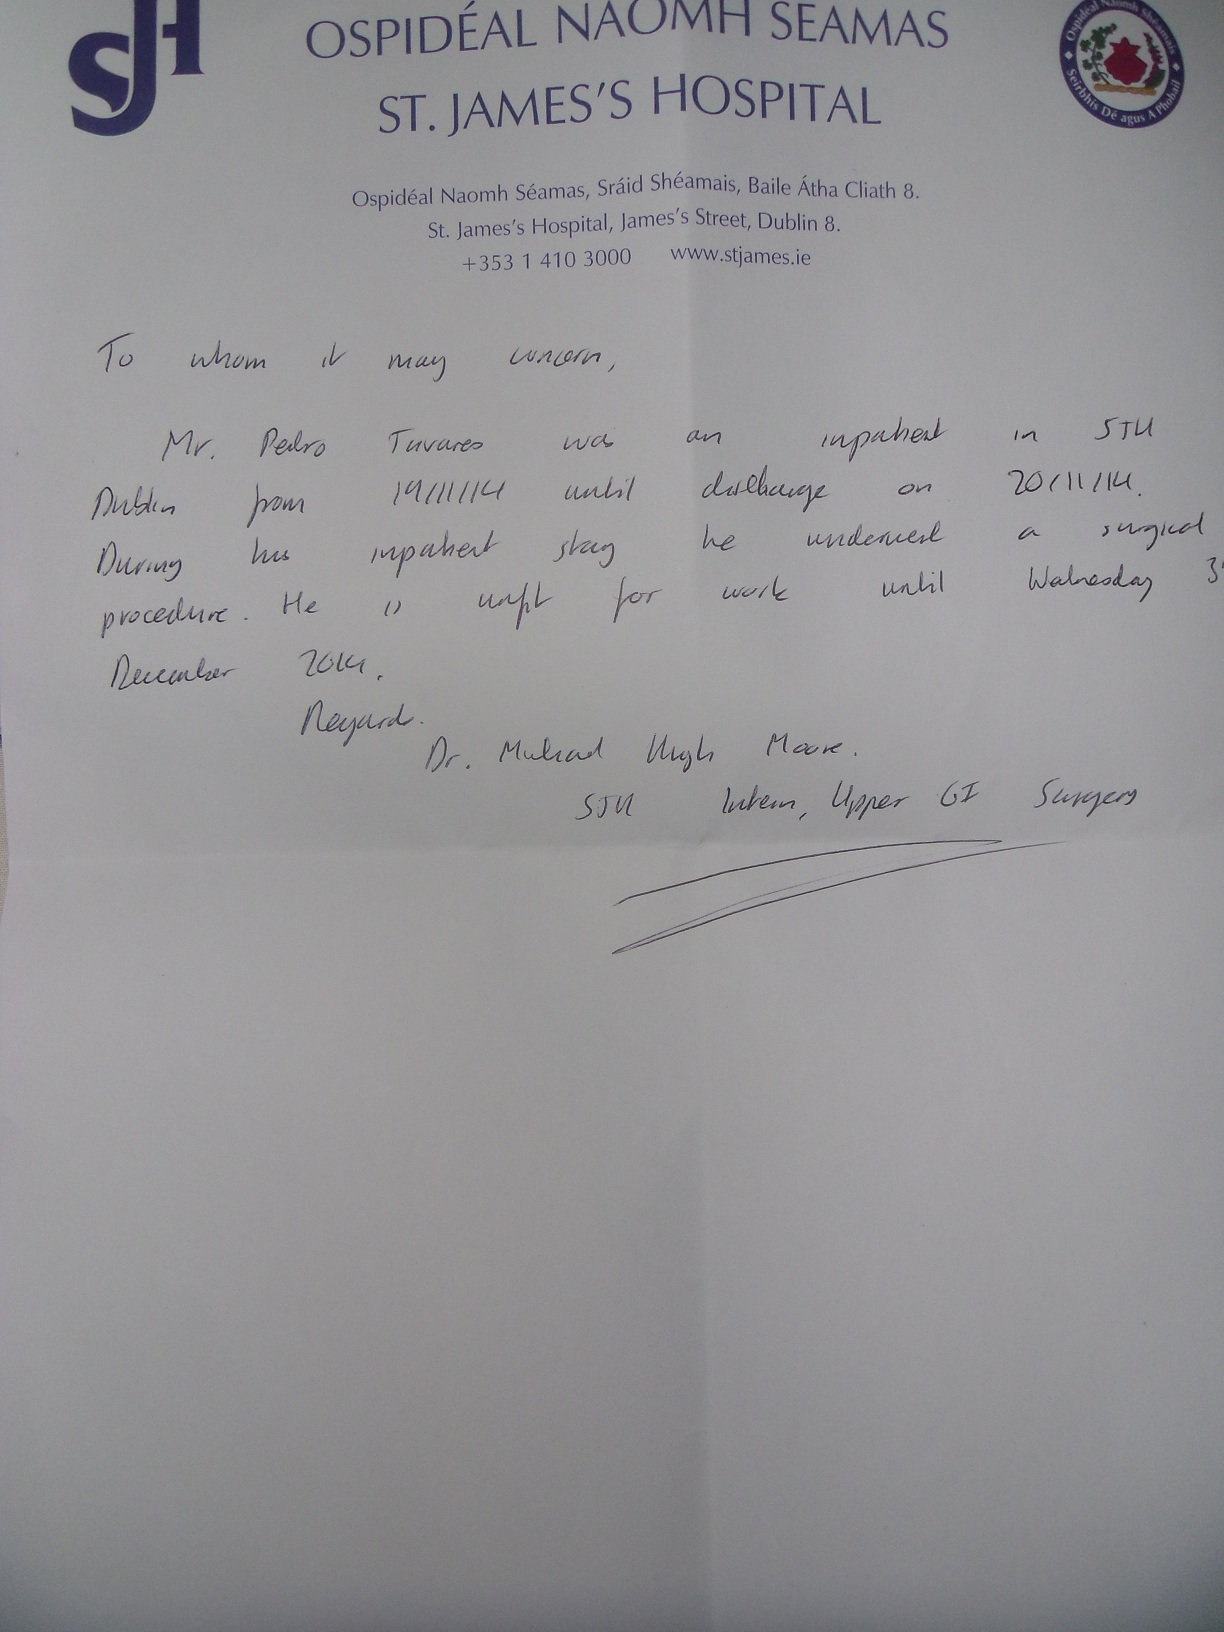 SJH
OSPIDÉAL NAOMH SÉAMAS
ST. JAMES'S HOSPITAL
Ospidéal Naomh Shéamais
Seirbhís Dé agus A Phobail
Ospidéal Naomh Séamas, Sráid Shéamais, Baile Átha Cliath 8.
St. James's Hospital, James's Street, Dublin 8.
+353 1 410 3000 www.stjames.ie
To whom it may concern,
Mr. Pedro Tavares was an inpatient in SJH
Dublin from 19/11/14 until discharge on 20/11/14.
During his inpatient stay he underwent a surgical
procedure. He is unfit for work until Wednesday 3
December 2014.
Regards.
Dr. Michael Hugh Moore.
SJH Intern, Upper GI Surgery